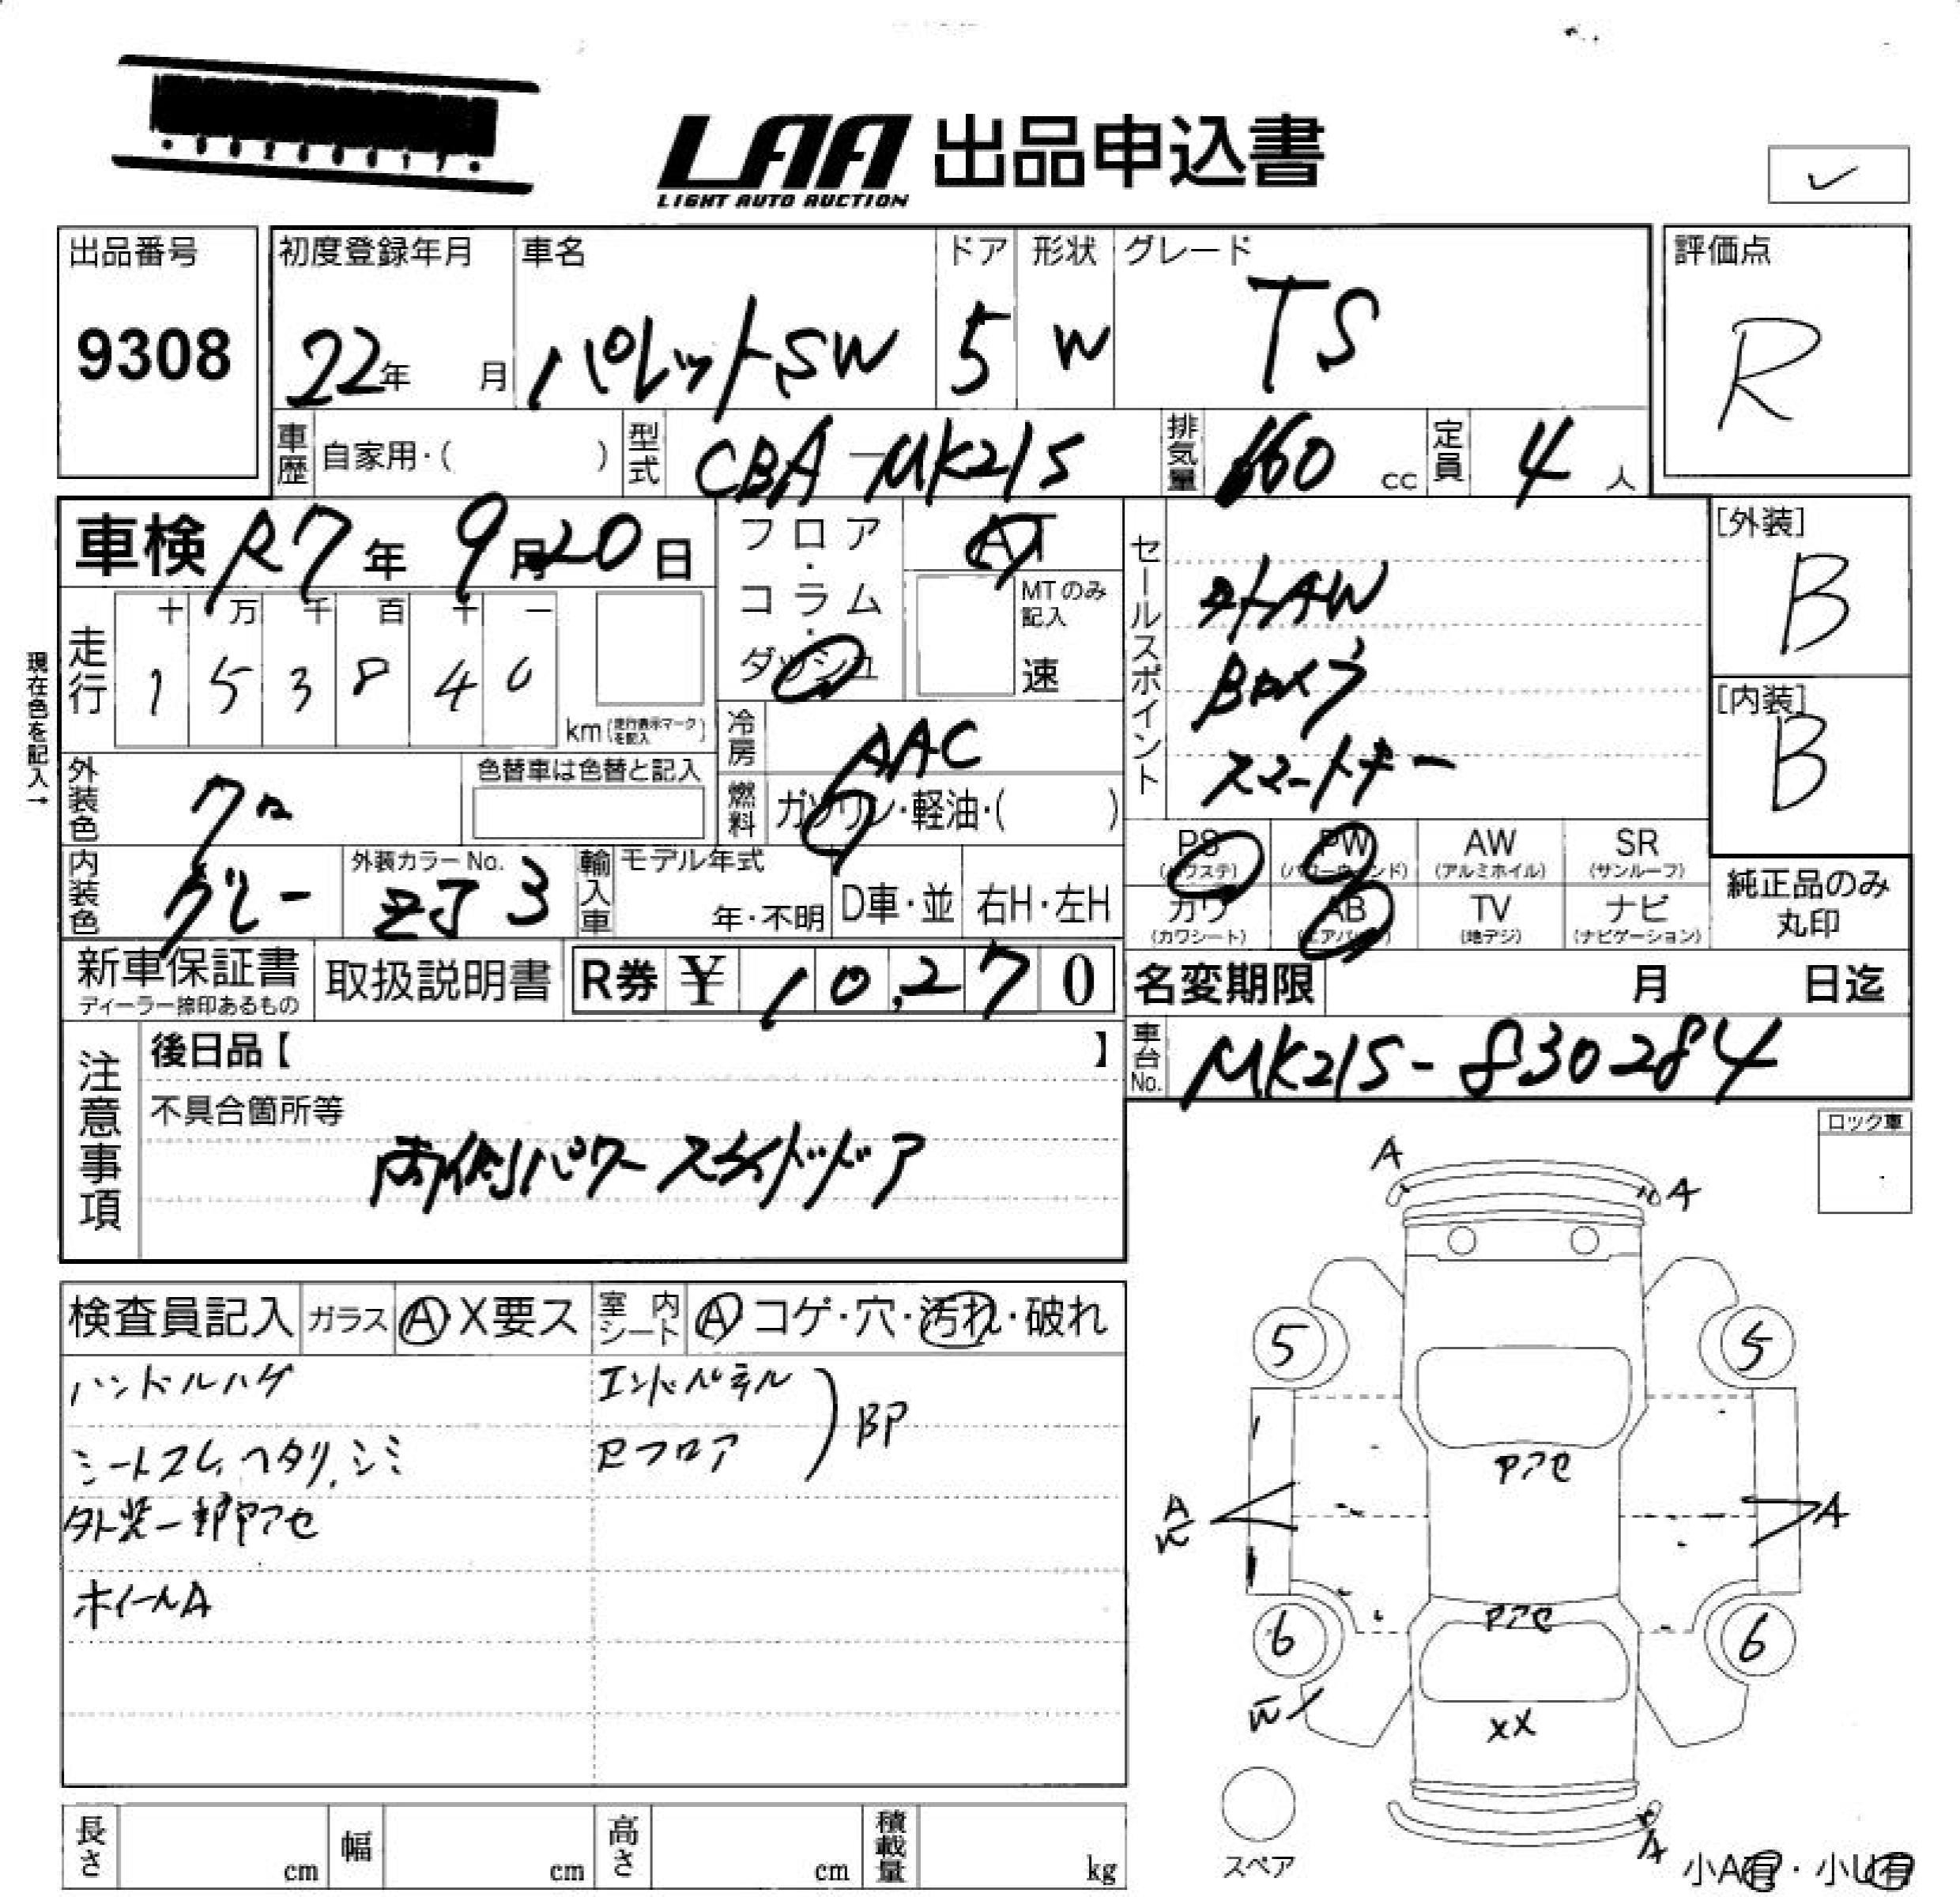 LAA 出品申込書
LIGHT AUTO AUCTION
出品番号
9308
初度登録年月
22年 月
車名
パレットSW
ドア
5
形状
W
グレード
TS
評価点
R
車歴 自家用・( )
型式 CBA-MK21S
排気量 660 cc
定員 4 人
車検 R7年 9月20日
フロア・コラム・ダッシュ
AT
MTのみ記入
速
現在色を記入→
走行
十 万 千 百 十 一
1 5 3 8 4
km(走行表示マークを記入)
冷房 AAC
燃料 ガソリン・軽油・( )
外装色 クロ
色替車は色替と記入
内装色 グレー
外装カラーNo. ZJ3
輸入車 モデル年式
年・不明 D車・並 右H・左H
セールスポイント
外AW
Bカメラ
スマートキー
[外装]
B
[内装]
B
PS (パワステ) PW (パワーウィンド) AW (アルミホイル) SR (サンルーフ)
カワ (カワシート) AB (エアバッグ) TV (地デジ) ナビ (ナビゲーション)
純正品のみ丸印
新車保証書
ディーラー捺印あるもの
取扱説明書
R券 ¥ 10,270
名変期限 月 日迄
車台No. MK21S-830284
注意事項
後日品【 】
不具合箇所等
両側パワースライドドア
ロック車
検査員記入 ガラス A X要ス 室内シート A コゲ・穴・汚れ・破れ
ハンドルハゲ
シートスレ、ヘタリ、シミ
外装一部Pアセ
ホイールA
エンドパネル
Rフロア
BP
A
A
5
5
Pアセ
A
A
Pアセ
6
6
XX
A
スペア
小A有・小U有
長さ cm 幅 cm 高さ cm 積載量 kg